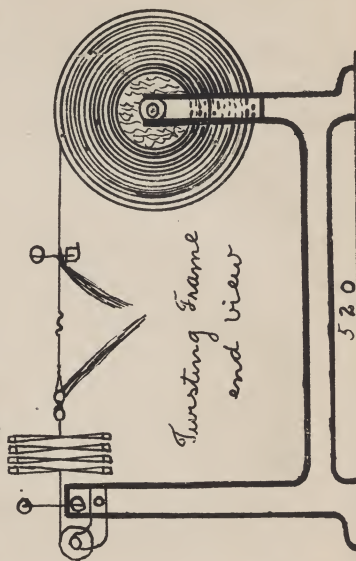 Twisting Frame
end view
520